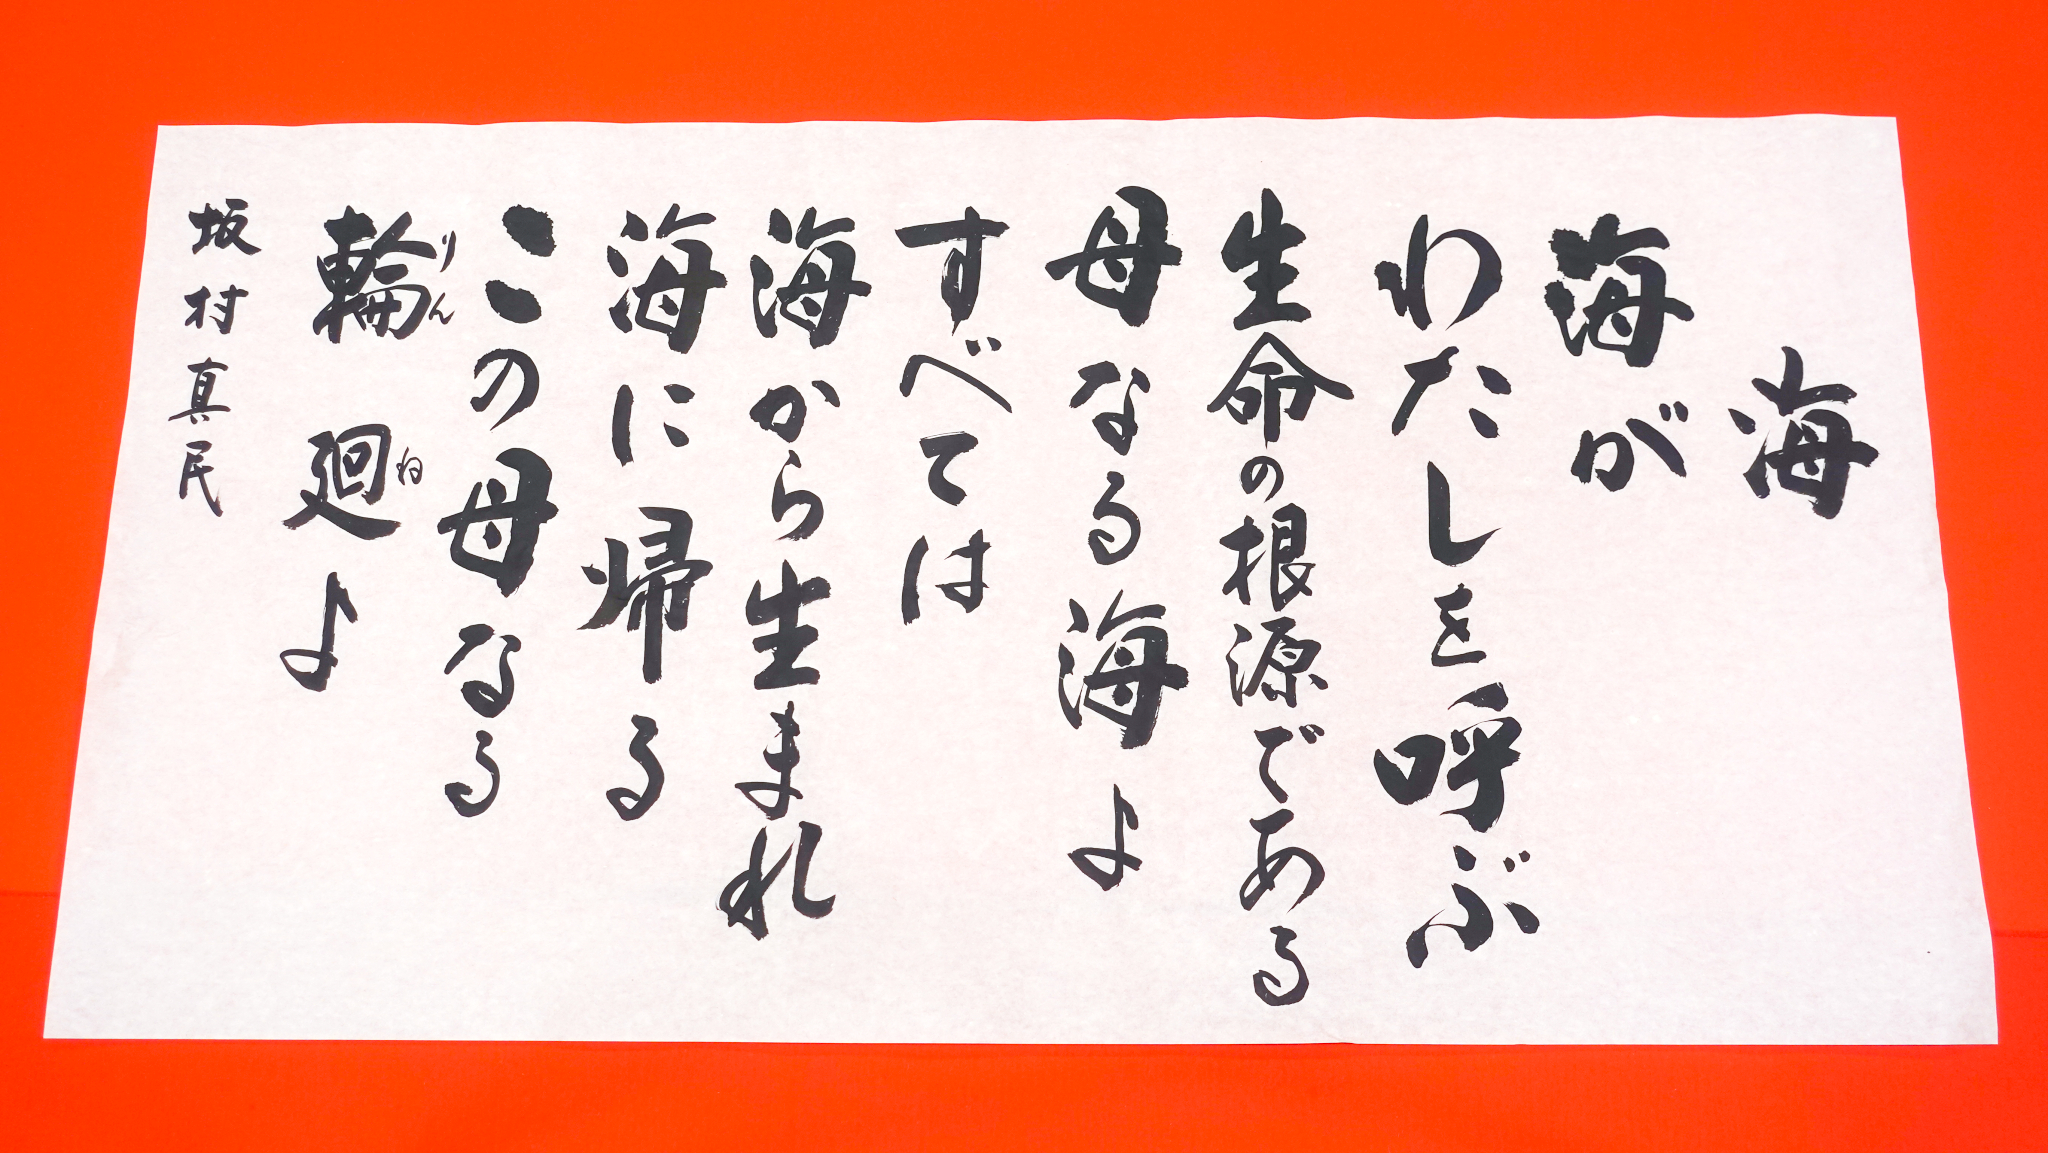 海
海が
わたしを呼ぶ
生命の根源である
母なる海よ
すべては
海から生まれ
海に帰る
この母なる
輪廻よ
りんね
坂村真民